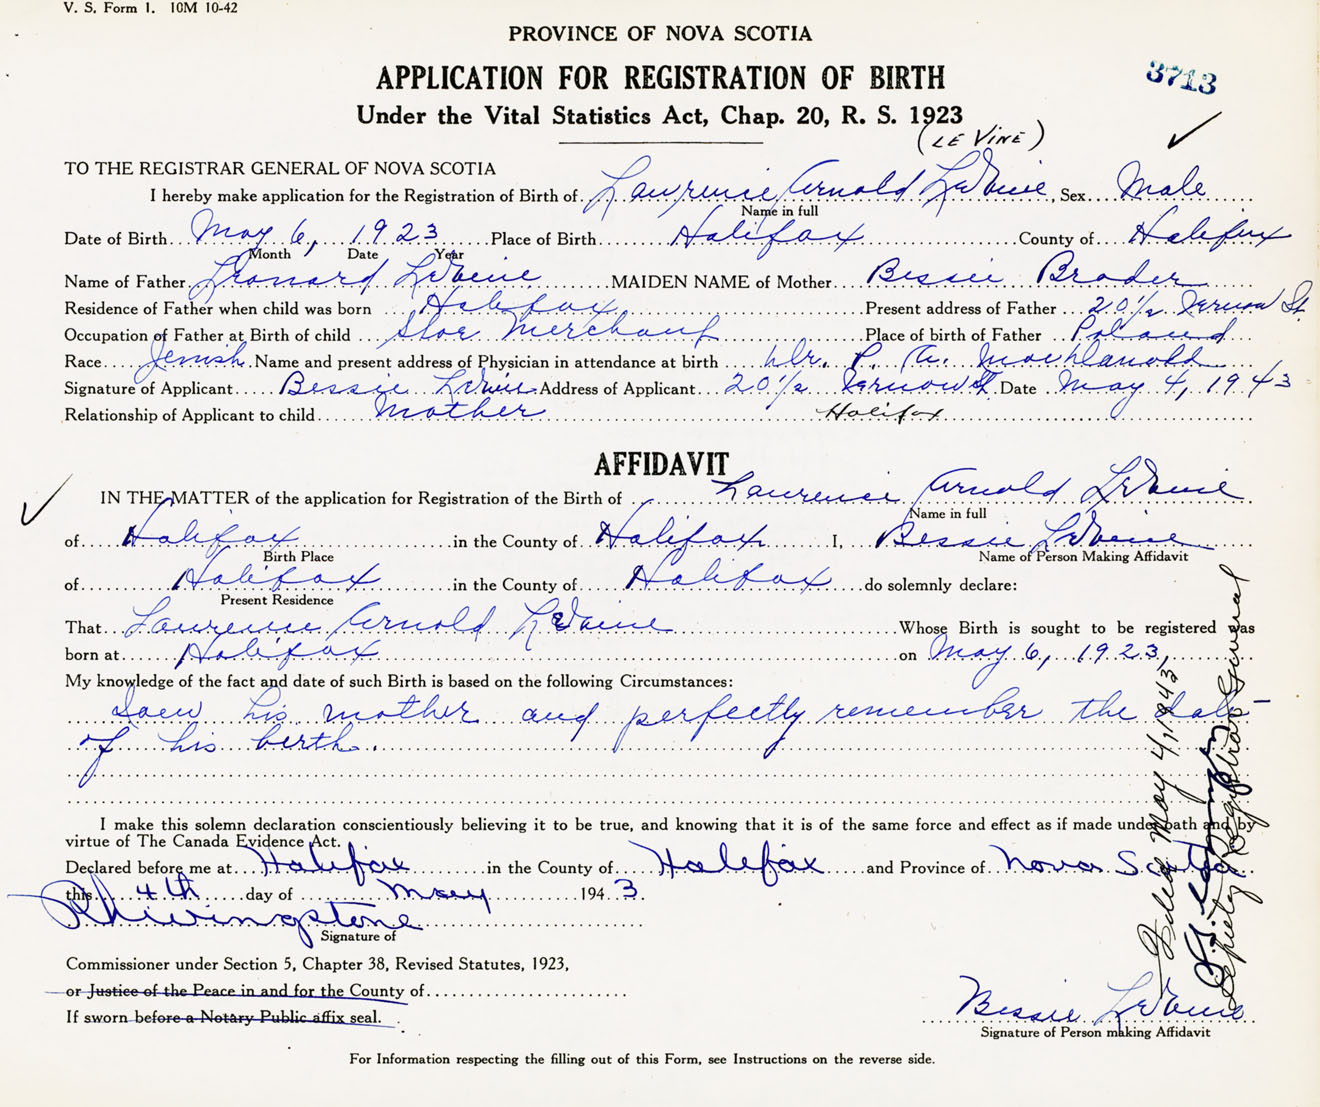 V. S. Form 1. 10M 10-42
PROVINCE OF NOVA SCOTIA
APPLICATION FOR REGISTRATION OF BIRTH
3713
Under the Vital Statistics Act, Chap. 20, R. S. 1923
(LE VINE)
TO THE REGISTRAR GENERAL OF NOVA SCOTIA
I hereby make application for the Registration of Birth of Lawrence Arnold LeVine, Sex Male
Name in full
Date of Birth May 6, 1923 Place of Birth Halifax County of Halifax
Month Date Year
Name of Father Leonard LeVine MAIDEN NAME of Mother Bessie Broder
Residence of Father when child was born Halifax Present address of Father 20 1/2 Vernon St.
Occupation of Father at Birth of child Shoe Merchant Place of birth of Father Poland
Race Jewish Name and present address of Physician in attendance at birth Dr. P. A.
Signature of Applicant Bessie LeVine Address of Applicant 20 1/2 Vernon St. Date May 4, 1943
Relationship of Applicant to child Mother Halifax
AFFIDAVIT
IN THE MATTER of the application for Registration of the Birth of Laurence Arnold LeVine
Name in full
of Halifax in the County of Halifax I, Bessie LeVine
Birth Place Name of Person Making Affidavit
of Halifax in the County of Halifax do solemnly declare:
Present Residence
That Laurence Arnold LeVine Whose Birth is sought to be registered was
born at Halifax on May 6, 1923,
My knowledge of the fact and date of such Birth is based on the following Circumstances:
his mother and perfectly remember the date
of his birth.
I make this solemn declaration conscientiously believing it to be true, and knowing that it is of the same force and effect as if made under oath and by
virtue of The Canada Evidence Act.
Declared before me at Halifax in the County of Halifax and Province of Nova Scotia
this 4th day of May 1943
R Livingstone
Signature of
Commissioner under Section 5, Chapter 38, Revised Statutes, 1923,
or Justice of the Peace in and for the County of
If sworn before a Notary Public affix seal.
Bessie LeVine
Signature of Person making Affidavit
For Information respecting the filling out of this Form, see Instructions on the reverse side.
Filed May 4, 1943
Deputy Registrar General